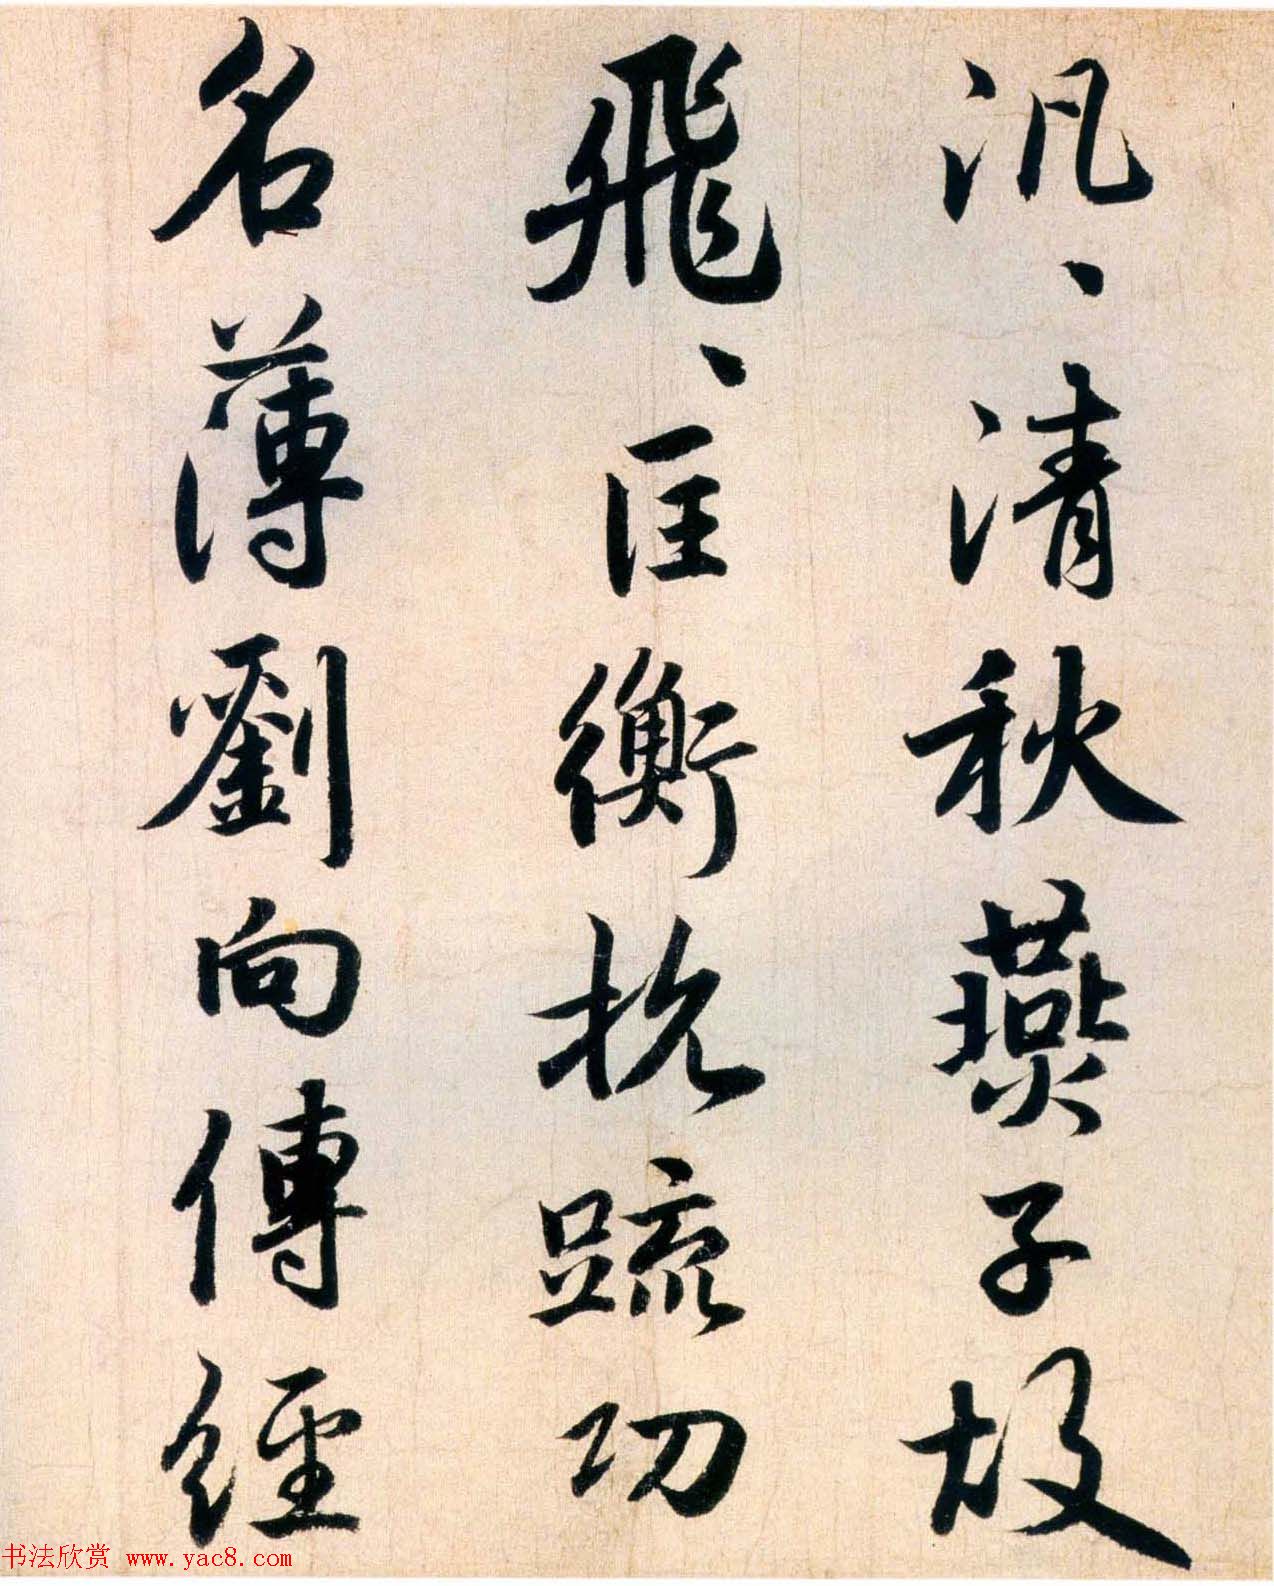 汎丶清秋燕子故
飛丶匡衡抗疏功
名薄劉向傳經
书法欣赏 www.yac8.com